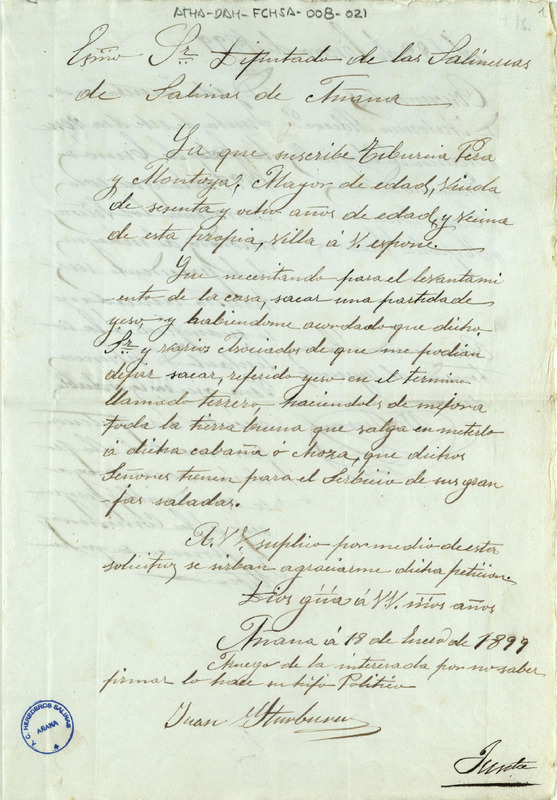 ATHA-DAH-FCHSA-008-021
1
Esmo Sr. Diputado de las Salineras
de Salinas de Anana
La que suscribe Tiburcia Pera
y Montoya, Mayor de edad, viuda
de sesenta y ocho años de edad, y vecina
de esta propia, villa á V. espone.
Que necesitando para el levantami
-ento de la casa, sacar una partida de
yeso, y habiendome acordado que dicho
Sr. y varios Asociados de que me podian
dejar sacar, referido yeso en el termino
llamado terrero, haciendoles de mejora
toda la tierra buena que salga en meterlo
á dicha cabaña ó choza, que dichos
Señores tienen para el Serbicio de sus gran
-jas saladas.
A VV. suplico por medio de esta
solicitud, se sirban agraciarme dicha peticion.
Dios güa á VV. ms años
Anana á 18 de Enero de 1899
Aruego de la interesada por no saber
firmar lo hace su hijo Politico
Juan Yturburu
Junta
A.C. HEREDEROS SALINAS
AÑANA